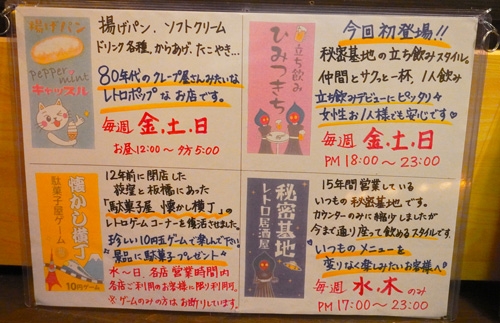 揚げパン
pepper
mint
キャッスル
揚げパン、ソフトクリーム
ドリンク各種、からあげ、たこやき…
80年代のクレープ屋さんみたいな
レトロポップなお店です。
毎週 金、土、日
お昼12:00〜夕方5:00
立ち飲み
ひみつきち
今回初登場!!
秘密基地の立ち飲みスタイル。
仲間とサクッと一杯、1人飲み
立ち飲みデビューにピッタリ
女性お1人様でも安心です♡
毎週 金、土、日
PM 18:00〜23:00
駄菓子屋ゲーム
懐かし横丁
10円ゲーム
12年前に閉店した
荻窪と板橋にあった
「駄菓子屋 懐かし横丁」の
レトロゲームコーナーを復活させました。
珍しい10円玉ゲームで楽しんで下さい
景品に駄菓子プレゼント
水〜日、各店営業時間内
各店ご利用のお客様に限り利用可。
※ゲームのみの方はお断りしています。
秘密基地
レトロ居酒屋
15年間営業している
いつもの秘密基地です。
カウンターのみに縮小しましたが
今まで通り座って飲めるスタイルです
いつものメニューを
変りなく楽しみたいお客様へ
毎週 水、木 のみ
PM 17:00〜23:00